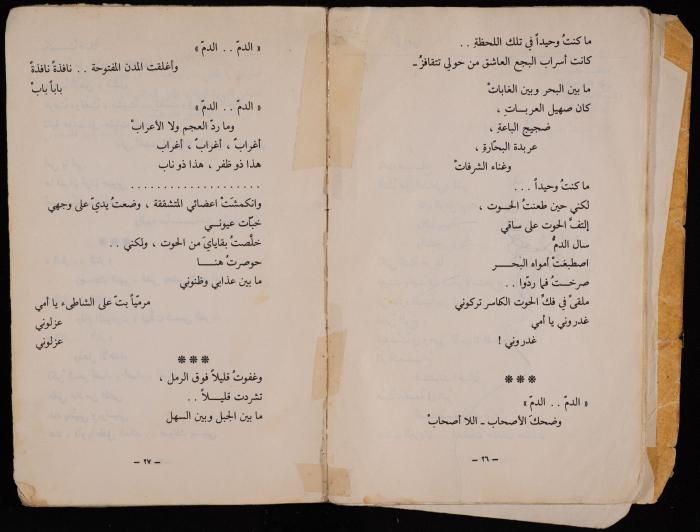 ما كنتُ وحيداً في تلك اللحظةِ ..
كانت أسراب البجع العاشق من حولي تتقافزُ ـ
ما بين البحر وبين الغاباتْ
كان صهيل العربــات ،
ضجيج الباعةِ ،
عربدة البحّارة ،
وغناء الشرفاتْ
ما كنتُ وحيداً ...
لكني حين طعنتُ الحــوت ،
إلتفَّ الحوت على ساقي
سال الدمُّ
اصطبغتْ أمواه البحــر
صرخــتُ فما ردّوا ..
ملقىً في فكِّ الحوت الكاسر تركوني
غدروني يا أمي
غدروني !
***
« الدمّ .. الدمّ »
وضحكَ الأصحاب ـ اللا أصحابْ
ـ ٢٦ ـ
« الدمّ .. الدمّ »
وأغلقت المدن المفتوحة .. نافذةً نافذةً
باباً بابْ
« الدمّ .. الدمّ »
وما ردّ العجم ولا الأعرابْ
أغرابٌ ، أغرابٌ ، أغراب
هذا ذو ظفر ، هذا ذو ناب
....................
وانكمشتْ اعضائي المتشققة ، وضعتُ يديّ على وجهي
خبّأت عيونــي
خلَّصتُ بقايايَ من الحوت ، ولكني ..
حوصرتُ هنــا
ما بين عذابي وظنوني
مرميّاً بتّ على الشاطىء يا أمي
عزلوني
عزلوني
***
وغفوتُ قليلاً فوق الرمل ،
تشردت قليــلاً ..
ما بين الجبل وبين السهل
ـ ٢٧ ـ